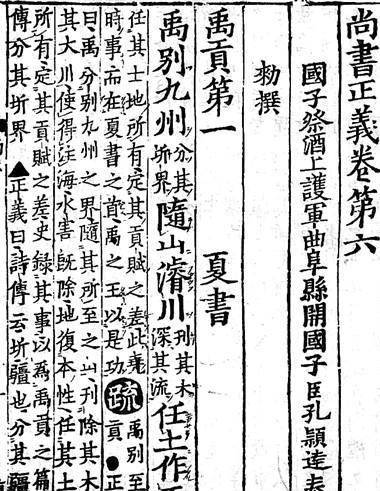 尚書正義卷第六
國子祭酒上護軍曲阜縣開國子臣孔穎達奉
勑撰
禹貢第一 夏書
禹別九州 分其圻界 隨山濬川 刊其木深其流 任土作
任其土地所有定其貢賦之差此堯時事而在夏書之首禹之王以是功 疏 禹別至貢●正
曰禹分別九州之界隨其所至之山刊除其木
其大川使得注海水害既除地復本性任其土
所有定其貢賦之差史錄其事以為禹貢之篇
傳分其圻界▲正義曰詩傳云圻疆也分其疆